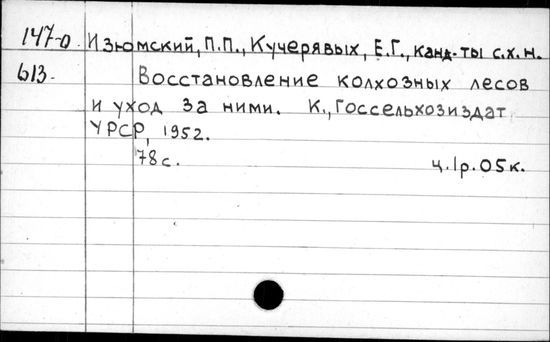 147-о Изюмский, П.П., Кучерявых, Е.Г., канд-ты с.х.н.
613. Восстановление колхозных лесов
и уход за ними. К., Госсельхозиздат
УРСР, 1952.
78с. ц.1р.05к.